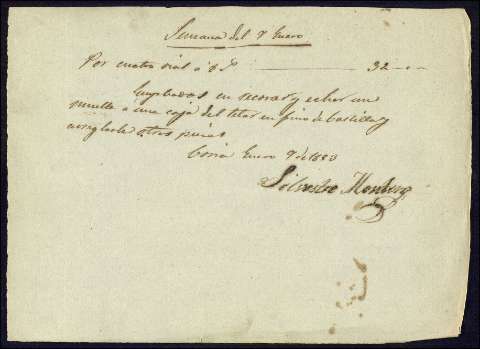 Semana del 9 Enero
Por cuatro dias á 8 32
Empleados en recorrer y echar un
muelle a una caja del telar en pino de Castilla y
arreglarle otras piezas
Coria Enero 9 de 1880
Silvestre Montero